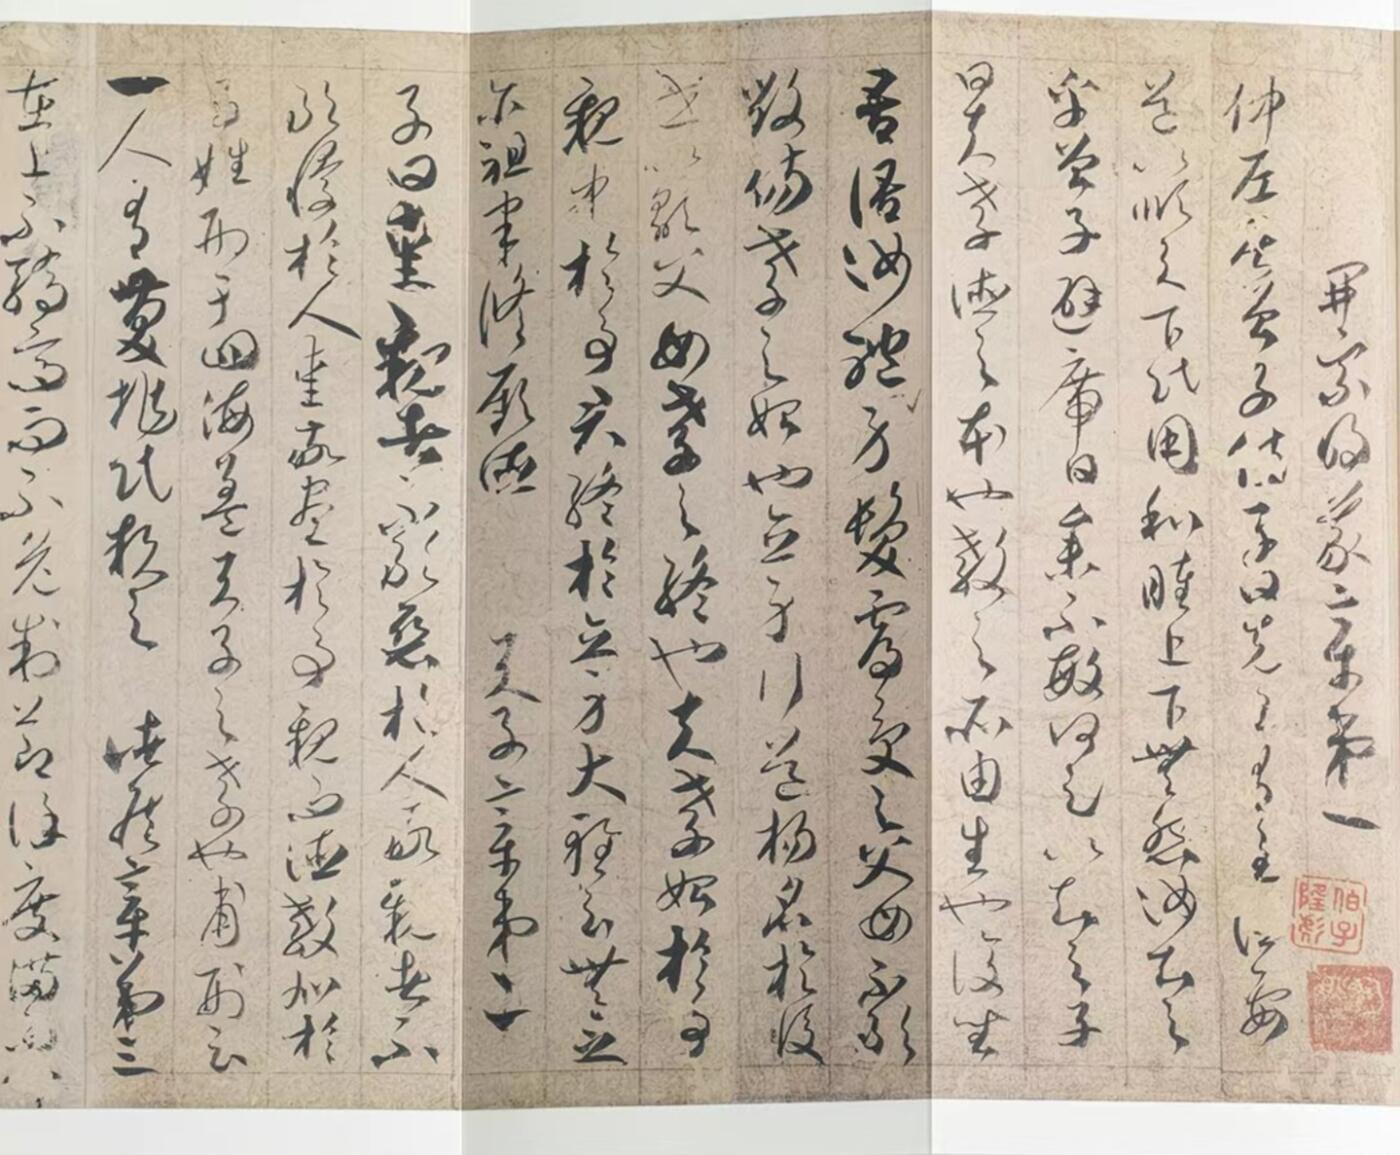 開宗明義章第一
仲尼居曾子侍子曰先王有至德要
道以順天下民用和睦上下無怨汝知之
乎曾子避席曰參不敏何足以知之子
曰夫孝德之本也教之所由生也復坐
吾語汝體身髮膚受之父母不敢
毀傷孝之始也立身行道揚名於後
世以顯父母孝之終也夫孝始於事
親中於事君終於立身大雅云無念
尒祖聿脩厥德 天子章第二
子曰愛親者不敢惡於人敬親者不
敢慢於人愛敬盡於事親而德教加於
百姓刑于四海蓋天子之孝也甫刑云
一人有慶兆民賴之 諸侯章第三
在上不驕高而不危制節謹度滿而不